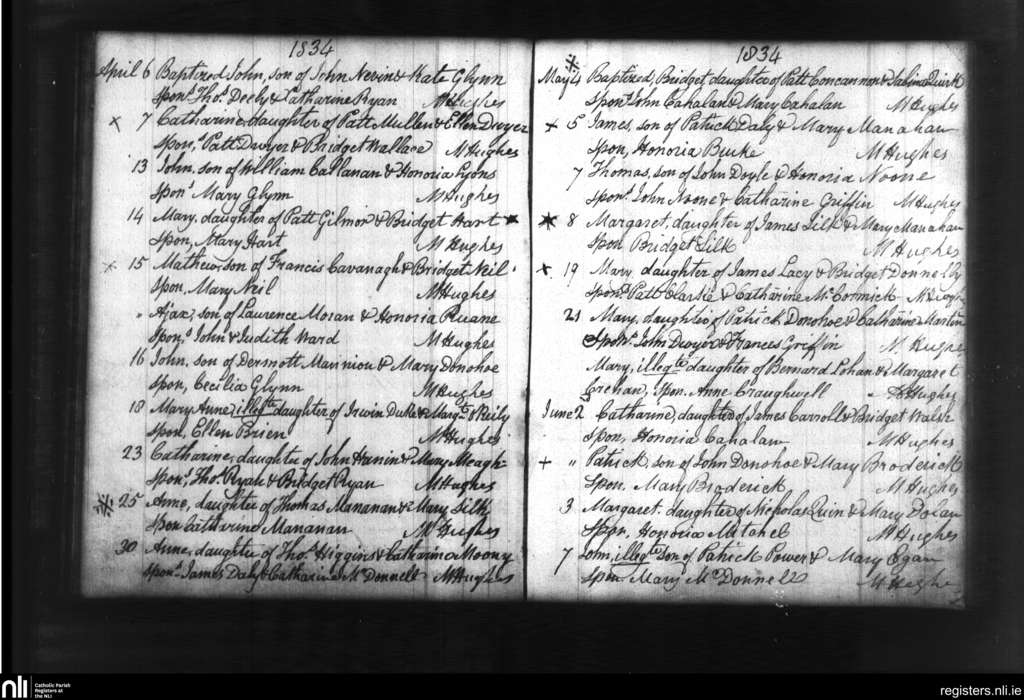 1834
April 6 Baptized John, son of John Nevin & Kate Glynn
Spons. Thos. Deely & Catharine Ryan MHughes
x 7 Catharine, daughter of Patt Mullen & Ellen Dwyer
Spons. Patt Dwyer & Bridget Wallace MHughes
13 John, son of William Callanan & Honoria Lyons
Spons. Mary Glynn MHughes
14 Mary, daughter of Patt Gilmor & Bridget Hart
Spon, Mary Hart MHughes
x 15 Mathew, son of Francis Cavanagh & Bridget Neil
Spon, Mary Neil MHughes
" Ajax, son of Laurence Moran & Honoria Ruane
Spons. John & Judith Ward MHughes
16 John, son of Dermott Mannion & Mary Donohoe
Spon, Cecilia Glynn MHughes
18 Mary Anne, illegte daughter of Irwin Duke & Margt. Reily
Spon, Ellen Brien MHughes
23 Catharine, daughter of John Hanin & Mary Meagh
Spons. Thos. Ryan & Bridget Ryan MHughes
25 Anne, daughter of Thomas Manahan & Mary Silk
Spon Catharine Manahan MHughes
30 Anne, daughter of Thos. Higgins & Catharine Moony
Spons. James Daly & Catharine McDonnell MHughes
1834
May 4 Baptized, Bridget, daughter of Patt Concannon & Sabina Quirk
Spons. John Cahalan & Mary Cahalan MHughes
+ 5 James, son of Patrick Daly & Mary Manahan
Spon, Honoria Burke MHughes
7 Thomas, son of John Doyle & Honoria Noone
Spons. John Noone & Catharine Griffin MHughes
8 Margaret, daughter of James Silk & Mary Manahan
Spon Bridget Silk MHughes
x 19 Mary, daughter of James Lacy & Bridget Donnelly
Spons. Patt & Catharine McCormick
21 Mary, daughter of Patrick Donohoe & Catharine Martin
Spons. John Dwyer & Frances Griffin M. Hughes
Mary, illegte daughter of Bernard Lohan & Margaret
Crehan, Spon. Anne Craughwell MHughes
June 2 Catharine, daughter of James Carroll & Bridget Walsh
Spon, Honoria Cahalan MHughes
+ " Patrick, son of John Donohoe & Mary Broderick
Spon. Mary Broderick MHughes
3 Margaret, daughter of Nicholas Quin & Mary Dolan
Spon, Honoria Mitchel MHughes
7 John, illegte son of Patrick Power & Mary Egan
Spon Mary McDonnell MHughes
nli Catholic Parish
Registers at
the NLI
registers.nli.ie